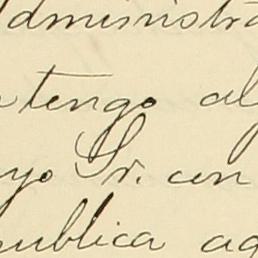 administra
tengo al
yo Sr. con
publica ag